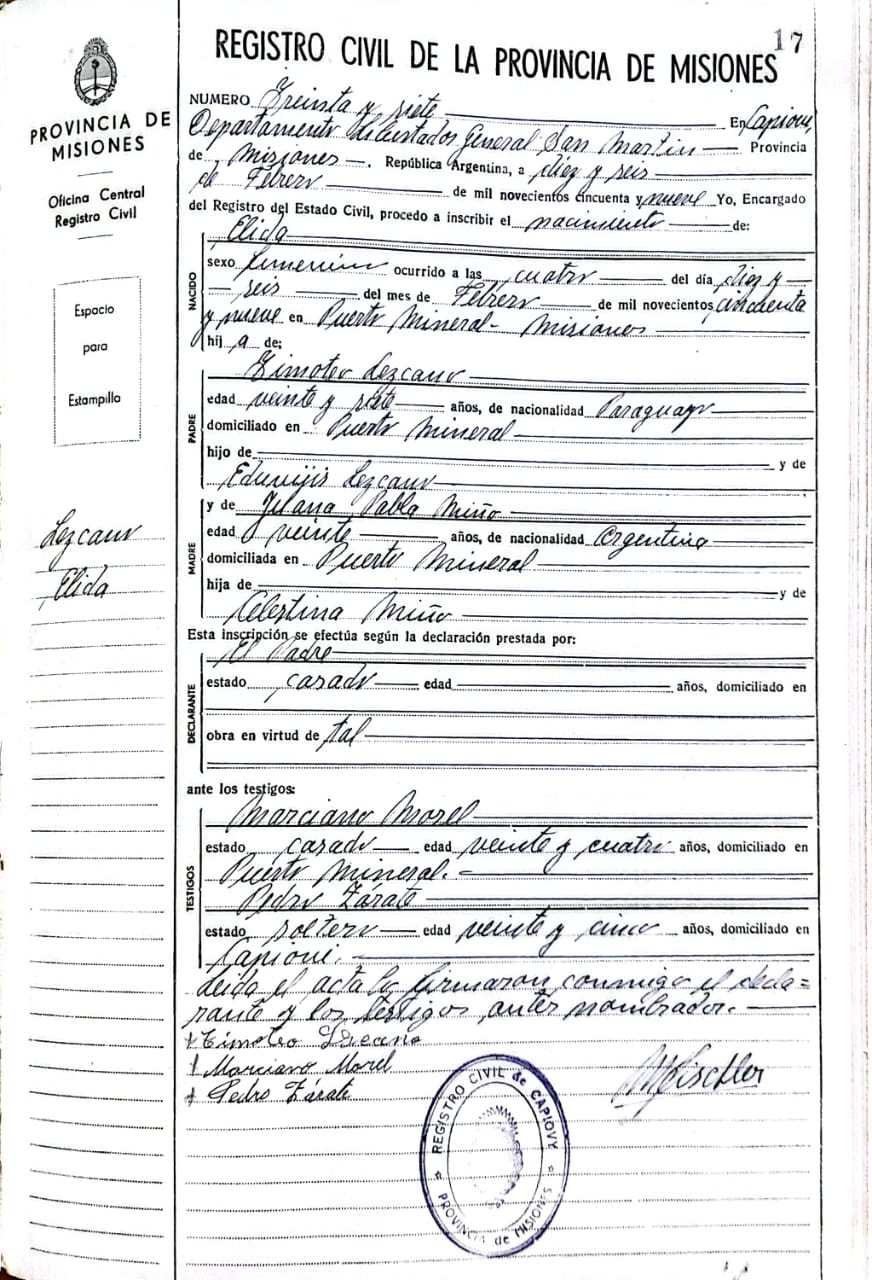 17
REGISTRO CIVIL DE LA PROVINCIA DE MISIONES
PROVINCIA DE
MISIONES
Oficina Central
Registro Civil
Espacio
para
Estampilla
Lezcano
Elida
NUMERO Treinta y siete En Capioví,
Departamento Libertador General San Martin Provincia
de Misiones . República Argentina, a diez y seis
de Febrero de mil novecientos cincuenta y nueve Yo, Encargado
del Registro del Estado Civil, procedo a inscribir el nacimiento de:
Elida
NACIDO
sexo femenino ocurrido a las cuatro del día diez y
seis del mes de Febrero de mil novecientos cincuenta
y nueve en Puerto Mineral - Misiones
hij a de;
Timoteo Lezcano
PADRE
edad veinte y siete años, de nacionalidad Paraguayo
domiciliado en Puerto Mineral
hijo de y de
Eduvijis Lezcano
y de Juana Pabla Miño
MADRE
edad veinte años, de nacionalidad Argentina
domiciliada en Puerto Mineral
hija de y de
Celestina Miño
Esta inscripción se efectúa según la declaración prestada por:
El Padre
DECLARANTE
estado casado edad años, domiciliado en
obra en virtud de tal
ante los testigos:
Marciano Morel
TESTIGOS
estado casado edad veinte y cuatro años, domiciliado en
Puerto Mineral.
Pedro Zárate
estado soltero edad veinte y cinco años, domiciliado en
Capioví.
Leida el acta la firmaron conmigo el decla=
rante y los testigos antes nombrados.
Timoteo Lezcano
Marciano Morel
Pedro Zárate
REGISTRO CIVIL de CAPIOVY
PROVINCIA de MISIONES